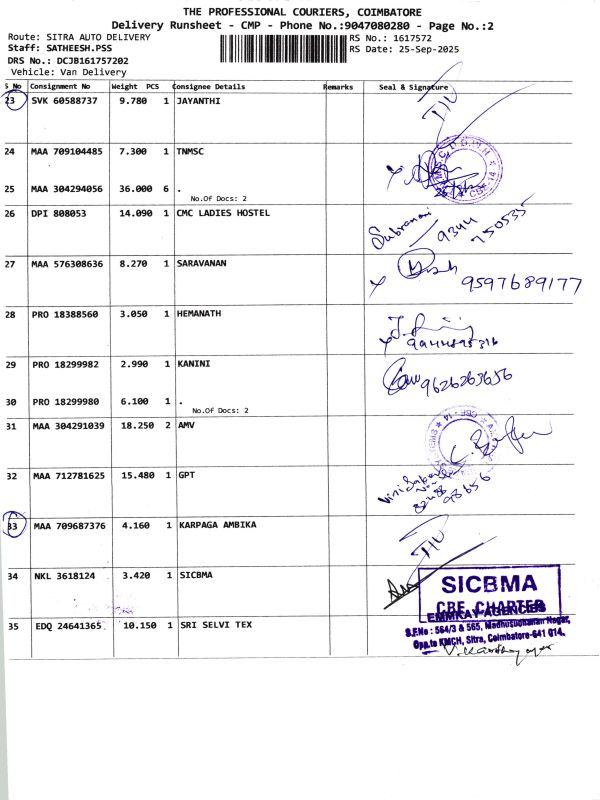 THE PROFESSIONAL COURIERS, COIMBATORE
Delivery Runsheet - CMP - Phone No.:9047080280 - Page No.:2
Route: SITRA AUTO DELIVERY RS No.: 1617572
Staff: SATHEESH.PSS RS Date: 25-Sep-2025
DRS No.: DCJB161757202
Vehicle: Van Delivery
S No Consignment No Weight PCS Consignee Details Remarks Seal & Signature
23 SVK 60588737 9.780 1 JAYANTHI
24 MAA 709104485 7.300 1 TNMSC
25 MAA 304294056 36.000 6 .
No.Of Docs: 2
26 DPI 808053 14.090 1 CMC LADIES HOSTEL
9344
750535
27 MAA 576308636 8.270 1 SARAVANAN
9597689177
28 PRO 18388560 3.050 1 HEMANATH
29 PRO 18299982 2.990 1 KANINI
9626263656
30 PRO 18299980 6.100 1 .
No.Of Docs: 2
31 MAA 304291039 18.250 2 AMV
32 MAA 712781625 15.480 1 GPT
33 MAA 709687376 4.160 1 KARPAGA AMBIKA
34 NKL 3618124 3.420 1 SICBMA
SICBMA
CBE CHAPTER
35 EDQ 24641365 10.150 1 SRI SELVI TEX
EMMKAY AGENCIES
S.F.No : 564/3 & 565, Madhusudhanan Nagar,
Opp.to KMCH, Sitra, Coimbatore-641 014.